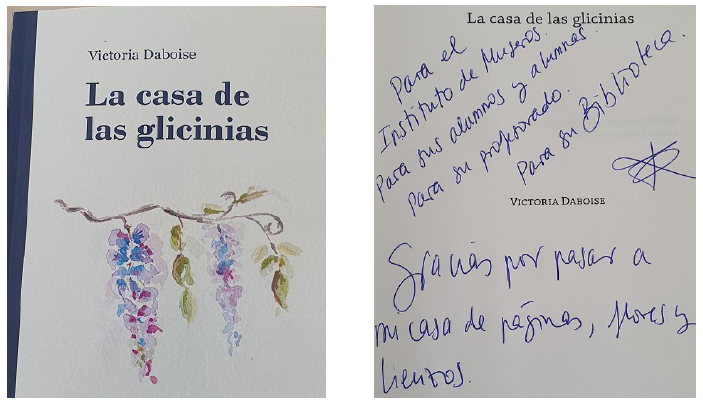 Victoria Daboise
La casa de
las glicinias
La casa de las glicinias
Para el
Instituto de Museros.
Para sus alumnos y alumnas.
Para su profesorado.
Para su Biblioteca.
VICTORIA DABOISE
Gracias por pasar a
mi casa de páginas, flores y
lienzos.